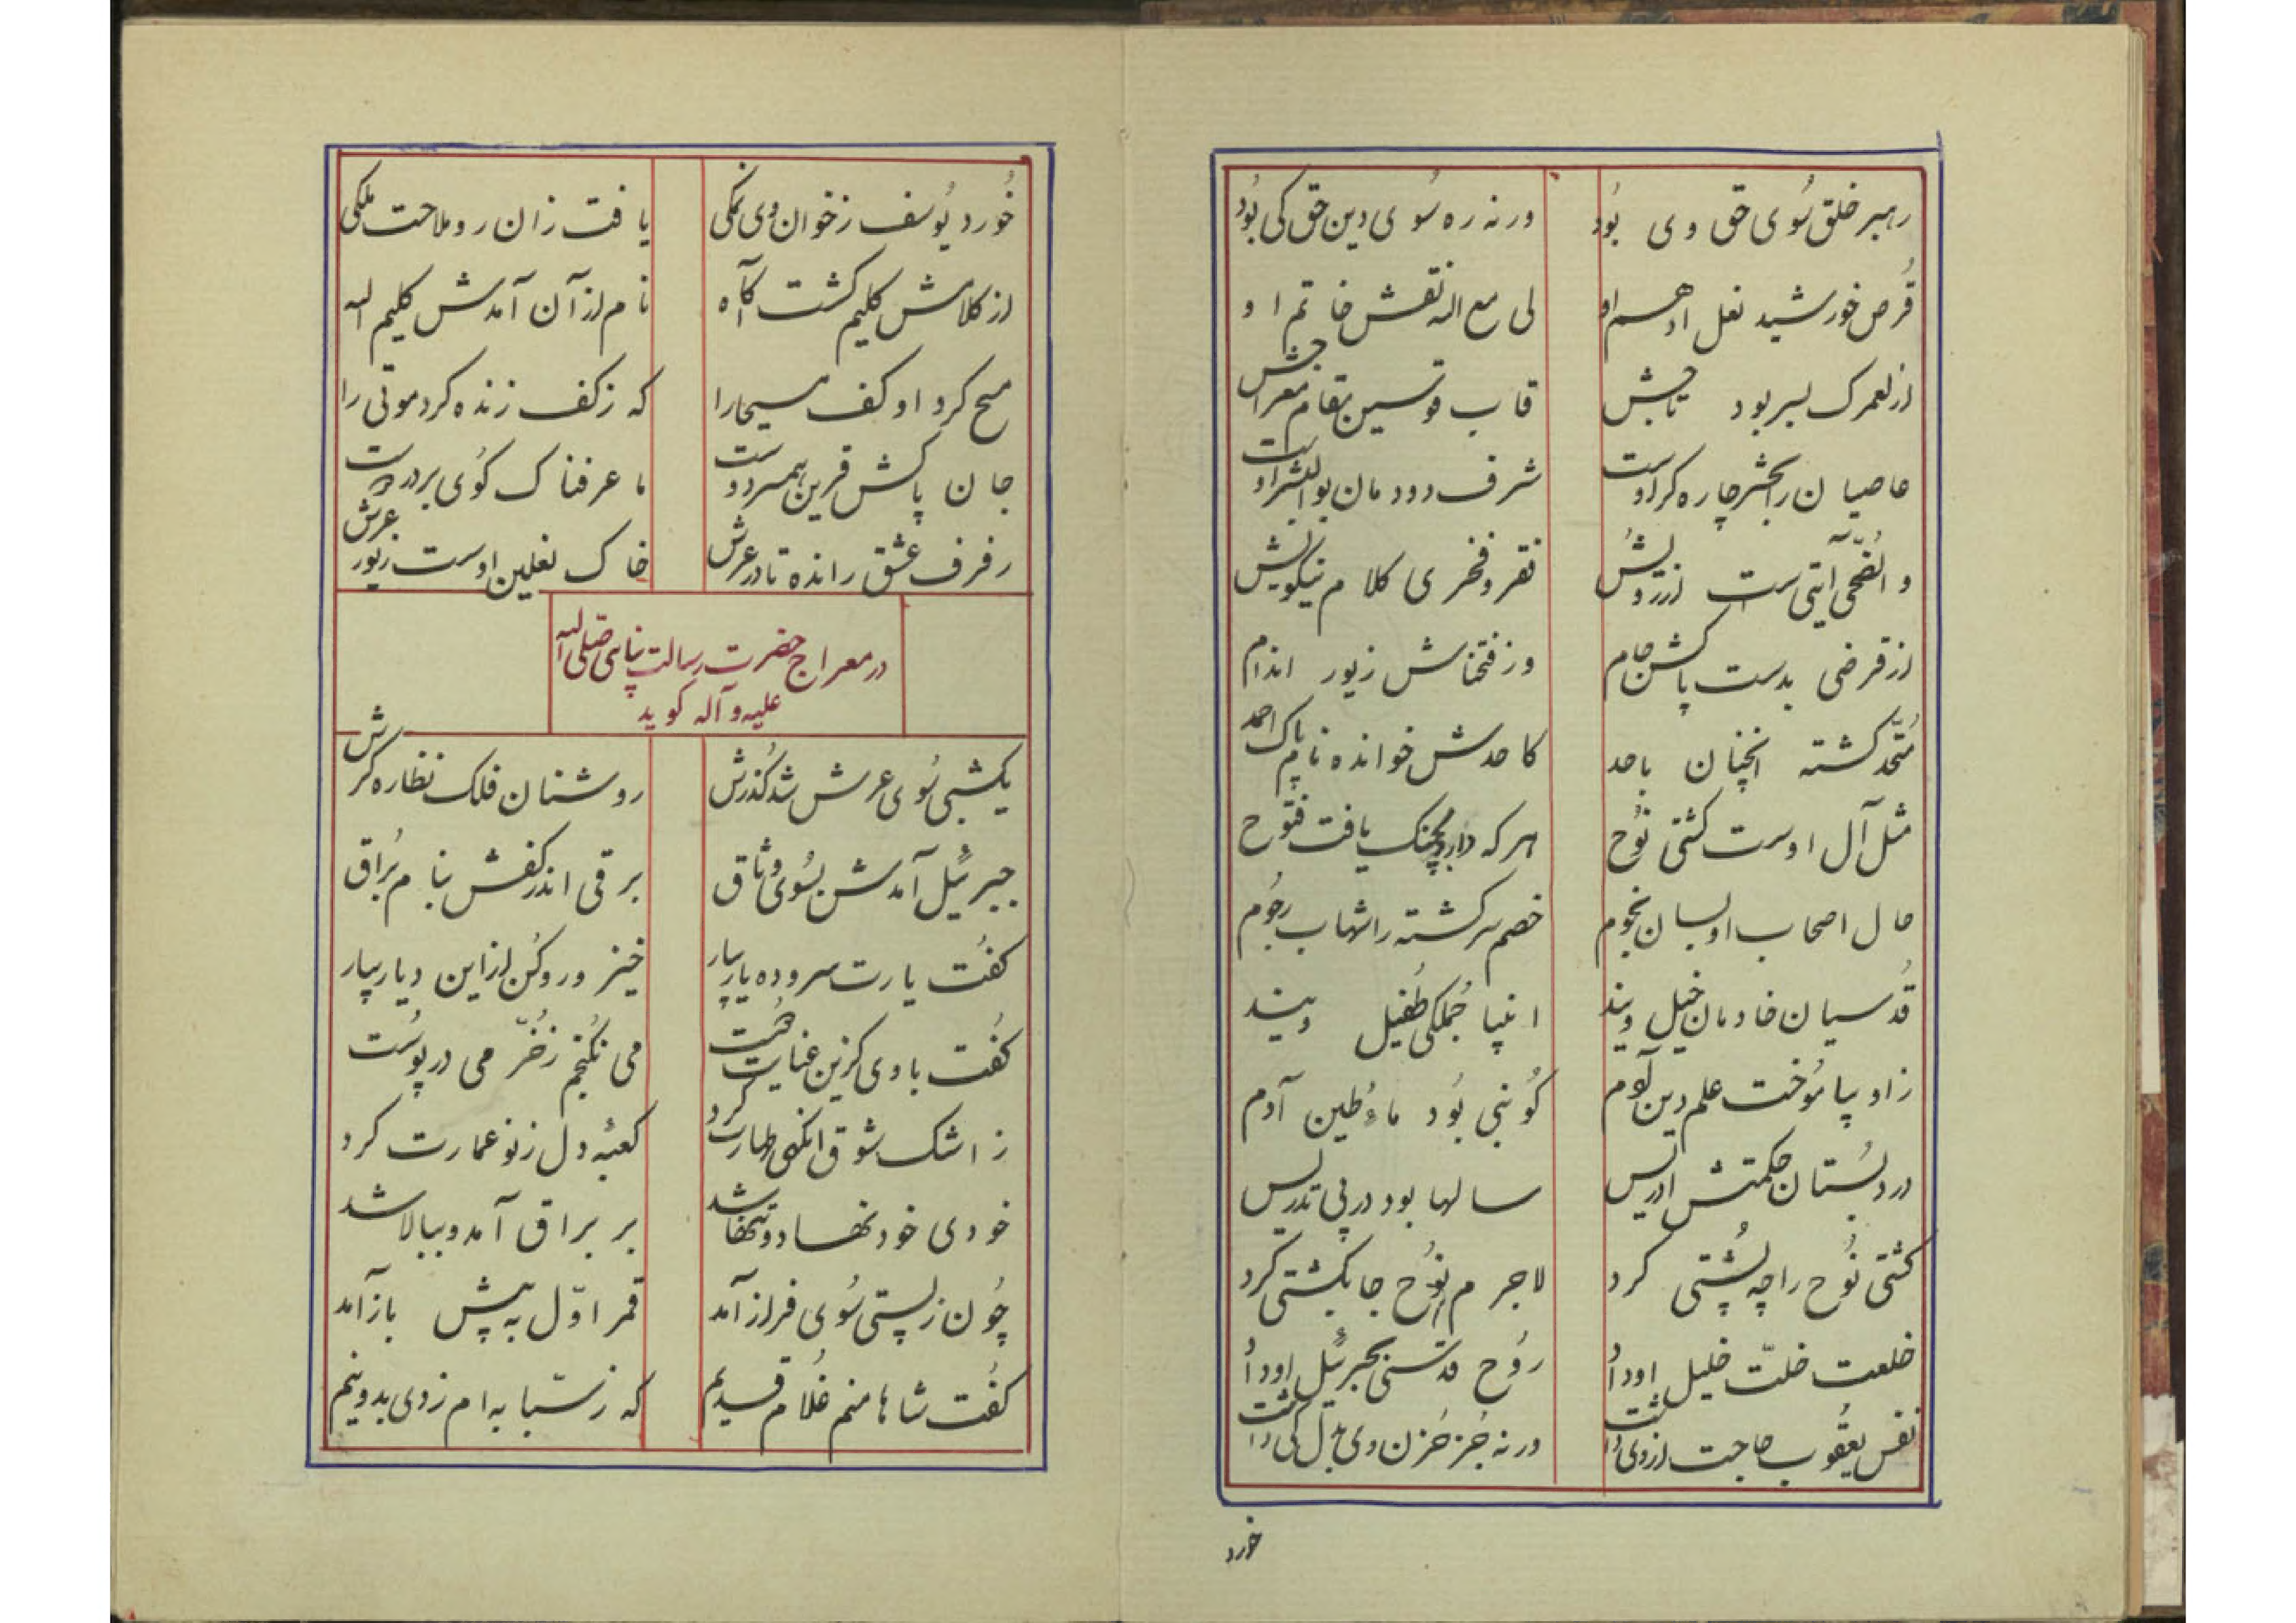 رهبر خلق سُوی حق وی بُود ورنه ره سُوی دین حق کی بُود
قُرص خورشید نعل ادهم او لی مع الله نقش خاتم او
از لعمرک بسر بود تاجش قاب قوسین مقام معراجش
عاصیان را بحشر چاره کر اوست شرف دودمان بوالبشر اوست
والضُّحی آیتی است از رویش فقر و فخری کلام نیکویش
از قرضی بدست پاکش جام وز فتحناش زیور اندام
مُتّحد کشته انچنان باحد کاحدش خوانده نام پاک احمد
مثل آل اوست کشتی نُوح هر که دارد بچنک یافت فتُوح
حال اصحاب او بسان نجُوم خصم سرکشته را شهاب رجُوم
قُدسیان خادمان خیل ویند انبیا جُملکی طُفیل ویند
زاو بیامُوخت علم دین آدم کُو نبی بُود ماءِ و طین آدم
در دبُستان حکمتش ادریس سالها بود در پی تدریس
کشتی نُوح را چه پُشتی کرد لاجرم نُوح جا بکشتی کرد
خلعت خلّت خلیل او دادُ رُوح قدسی بجبرئیل او دادُ
نفس یعقُوب حاجت از وی داشت ورنه جُز حُزن وی بدل کی داشت
خورد
خُورد یُوسف ز خوان وی نمکی یافت زان رو ملاحت ملکی
از کلامش کلیم کشت آکاه نام از آن آمدش کلیم الله
مسح کرد او کف مسیحا را که ز کف زنده کرد موتی را
جان پاکش قرین همسر دوست ما عرفناک کُوی بر در اوست
رفرف عشق رانده تا در عرش خاک نعلین اوست زیور عرش
در معراج حضرت رسالت پناهی صلی الله
علیه و آله کوید
یکشبی سُوی عرش شد کُذرش روشنان فلک نظاره کرش
جبرئیل آمدش بسُوی وثاق برقی اندر کفش بنام بُراق
کفُت یارت سروده یار بیار خیز و رو کُن از این دیار بیار
کفُت با وی کزین عنایت دُوست می نکُنجم ز خُرّمی در پُوست
ز اشک شوق انکهی طهارت کرد کعبهٔ دل ز نو عمارت کرد
خودی خود نهاد و تنها شد بر براق آمد و ببالا شد
چُون ز پستی سُوی فراز آمد قمر اوّل به پیش باز آمد
کفُت شاها منم غُلام قدیم که ز سبّابه‌ام زدی بدو نیم